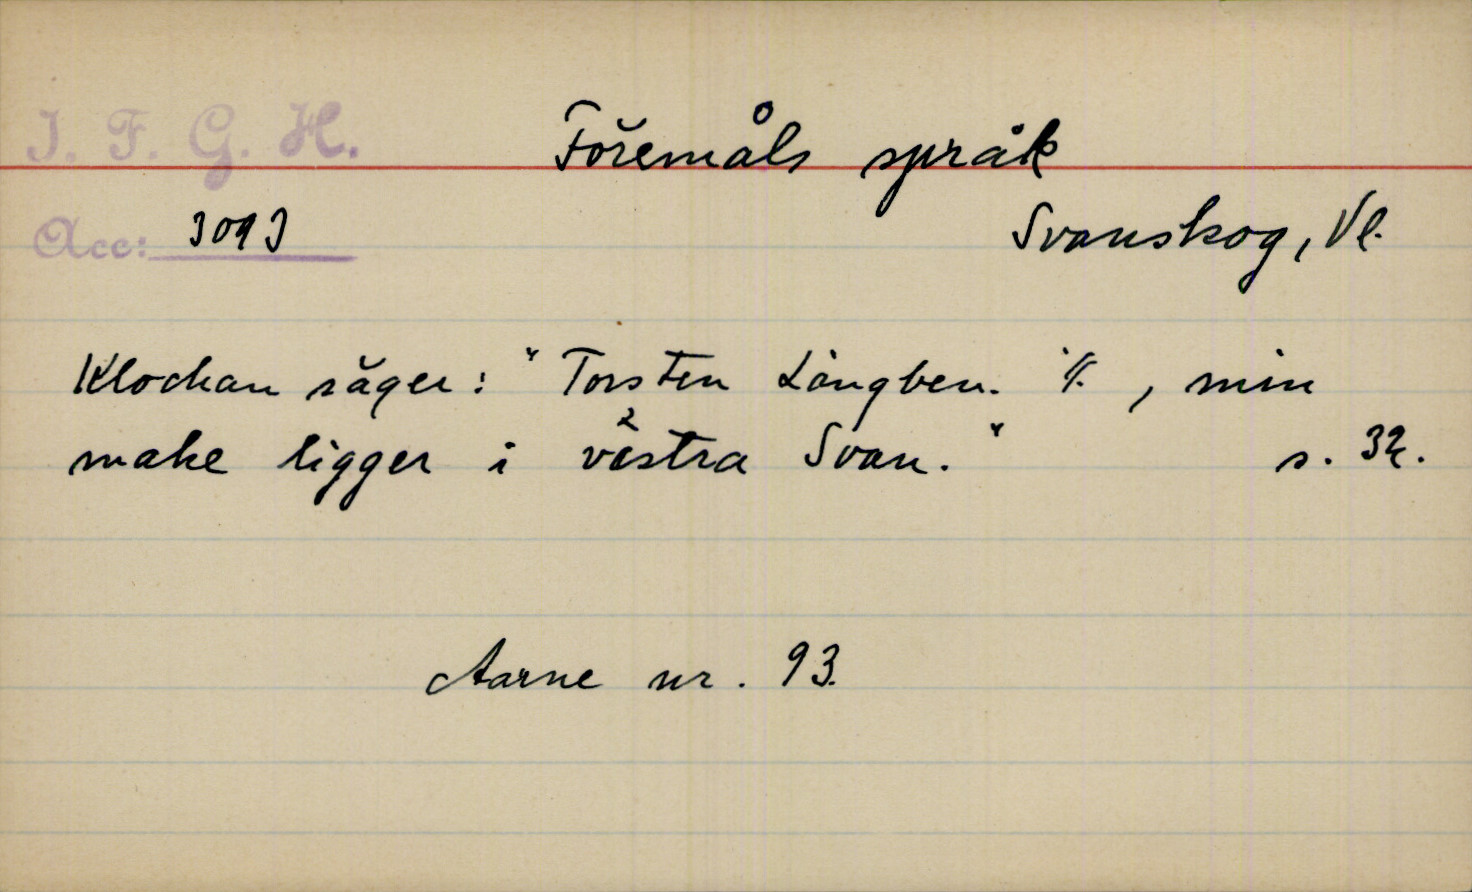 I. F. G. H.
Föremåls språk
Acc: 3093
Svanskog, Vl.
Klockan säger: "Torsten Långben. :/: , min
make ligger i västra Svan."
s. 32.
Aarne nr. 93.